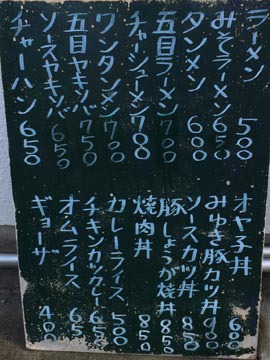 ラーメン 500
みそラーメン 650
タンメン 600
五目ラーメン 700
チャーシューメン 700
ワンタンメン 700
五目ヤキソバ 750
ソースヤキソバ 650
チャーハン 650
オヤ子丼 680
みゆき豚カツ丼 910
ソースカツ丼 850
豚しょうが焼丼 850
焼肉丼 850
カレーライス 500
チキンカツカレー 650
オムライス 650
ギョーザ 400